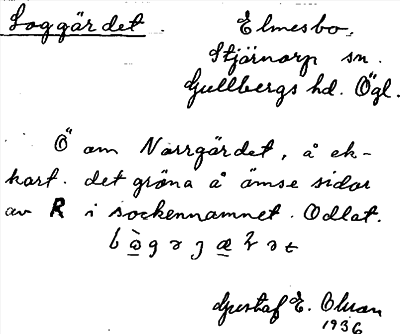 Loggärdet. Elmesbo,
Stjärnorp sn.
Gullbergs hd. Ögl.
Ö om Norrgärdet, å ek-
kart. det gröna å ömse sidor
av R i sockennamnet. Odlat.
Gustaf E. Olson
1936